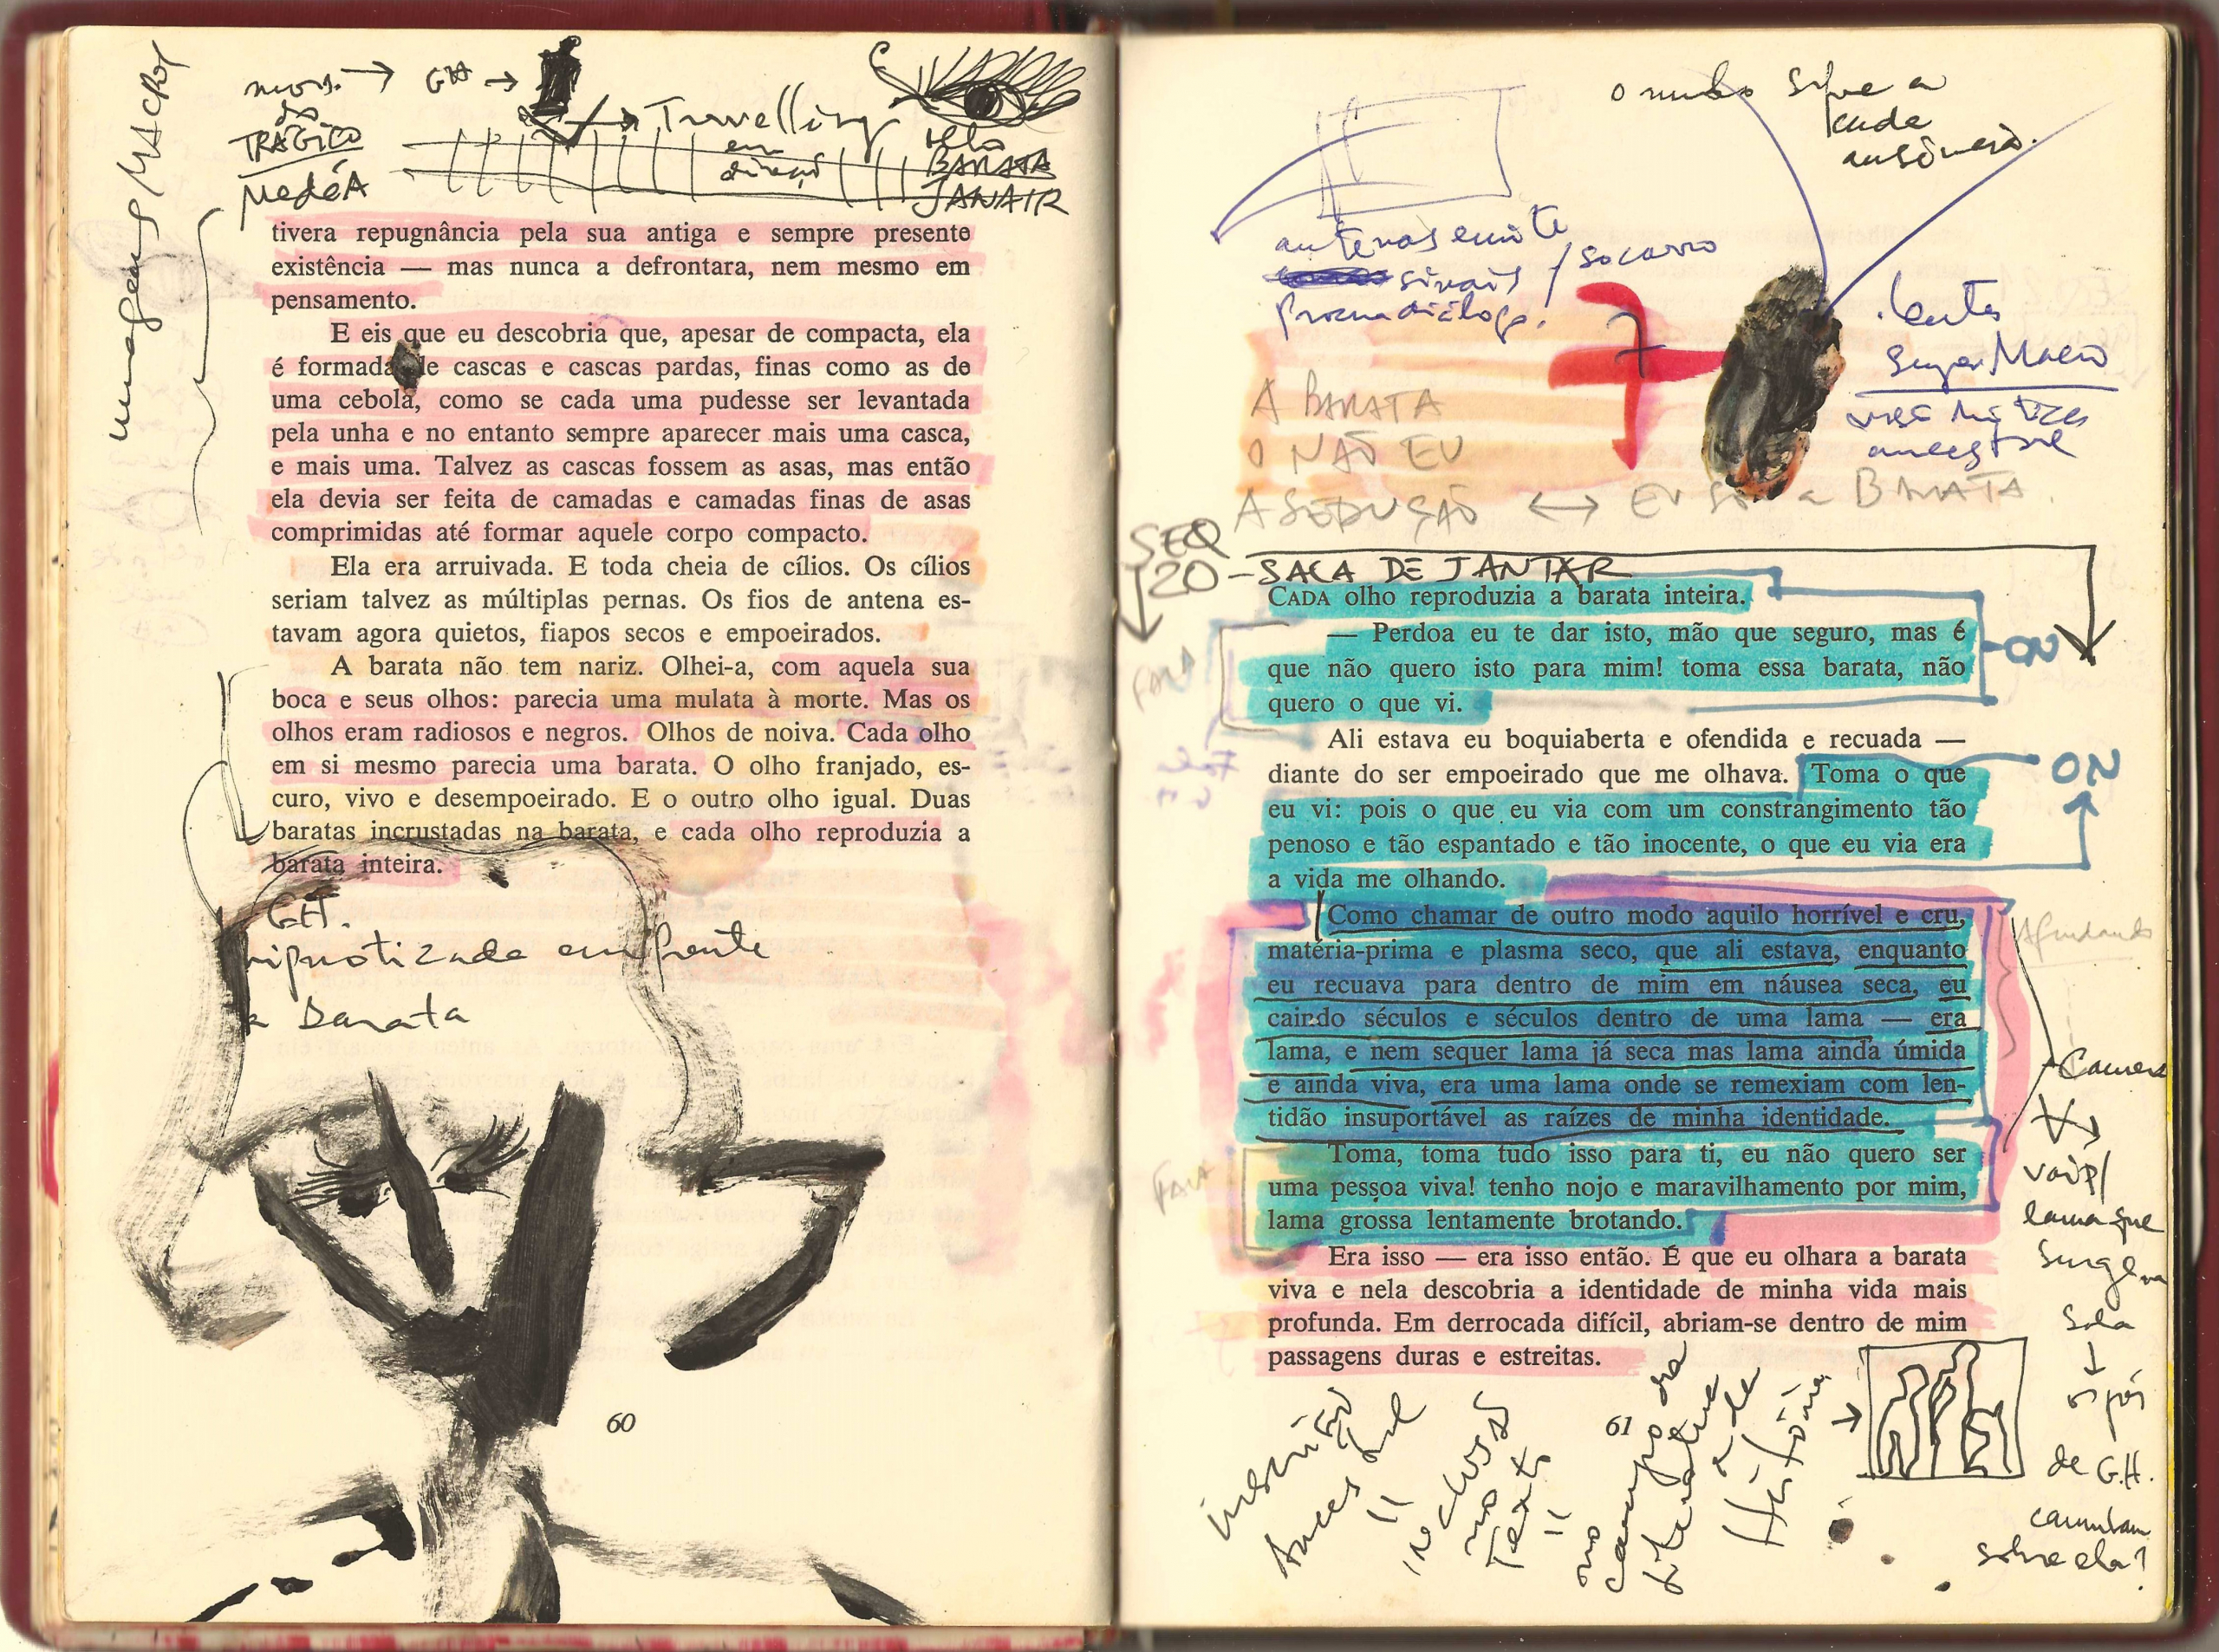 imagens MACROS
GH →
TRÁGICO
MEDÉA
→ Travelling
em
BARATA
JANAIR
tivera repugnância pela sua antiga e sempre presente
existência — mas nunca a defrontara, nem mesmo em
pensamento.
E eis que eu descobria que, apesar de compacta, ela
é formada de cascas e cascas pardas, finas como as de
uma cebola, como se cada uma pudesse ser levantada
pela unha e no entanto sempre aparecer mais uma casca,
e mais uma. Talvez as cascas fossem as asas, mas então
ela devia ser feita de camadas e camadas finas de asas
comprimidas até formar aquele corpo compacto.
Ela era arruivada. E toda cheia de cílios. Os cílios
seriam talvez as múltiplas pernas. Os fios de antena es-
tavam agora quietos, fiapos secos e empoeirados.
A barata não tem nariz. Olhei-a, com aquela sua
boca e seus olhos: parecia uma mulata à morte. Mas os
olhos eram radiosos e negros. Olhos de noiva. Cada olho
em si mesmo parecia uma barata. O olho franjado, es-
curo, vivo e desempoeirado. E o outro olho igual. Duas
baratas incrustadas na barata, e cada olho reproduzia a
barata inteira.
GH.
hipnotizada em frente
a barata
60
antenas emite
sinais / socorro
lente
Super Macro
ancestral
A BARATA
O NÃO EU
A SEDUÇÃO ↔ EU SOU a BARATA.
SEQ
20 - SALA DE JANTAR
CADA olho reproduzia a barata inteira.
— Perdoa eu te dar isto, mão que seguro, mas é
que não quero isto para mim! toma essa barata, não
quero o que vi.
ON
FALA
Ali estava eu boquiaberta e ofendida e recuada —
diante do ser empoeirado que me olhava. Toma o que
eu vi: pois o que eu via com um constrangimento tão
penoso e tão espantado e tão inocente, o que eu via era
a vida me olhando.
ON
Como chamar de outro modo aquilo horrível e cru,
matéria-prima e plasma seco, que ali estava, enquanto
eu recuava para dentro de mim em náusea seca, eu
caindo séculos e séculos dentro de uma lama — era
lama, e nem sequer lama já seca mas lama ainda úmida
e ainda viva, era uma lama onde se remexiam com len-
tidão insuportável as raízes de minha identidade.
Afundando
Toma, toma tudo isso para ti, eu não quero ser
uma pessoa viva! tenho nojo e maravilhamento por mim,
lama grossa lentamente brotando.
FALA
Era isso — era isso então. É que eu olhara a barata
viva e nela descobria a identidade de minha vida mais
profunda. Em derrocada difícil, abriam-se dentro de mim
passagens duras e estreitas.
Camera
lama que
surge na
Sala
↓
os pés
de G.H.
caminham
sobre ela?
61
inscrição
ancestral
=
inclusos
no
Texto
=
no
campo da
literatura
e da
História